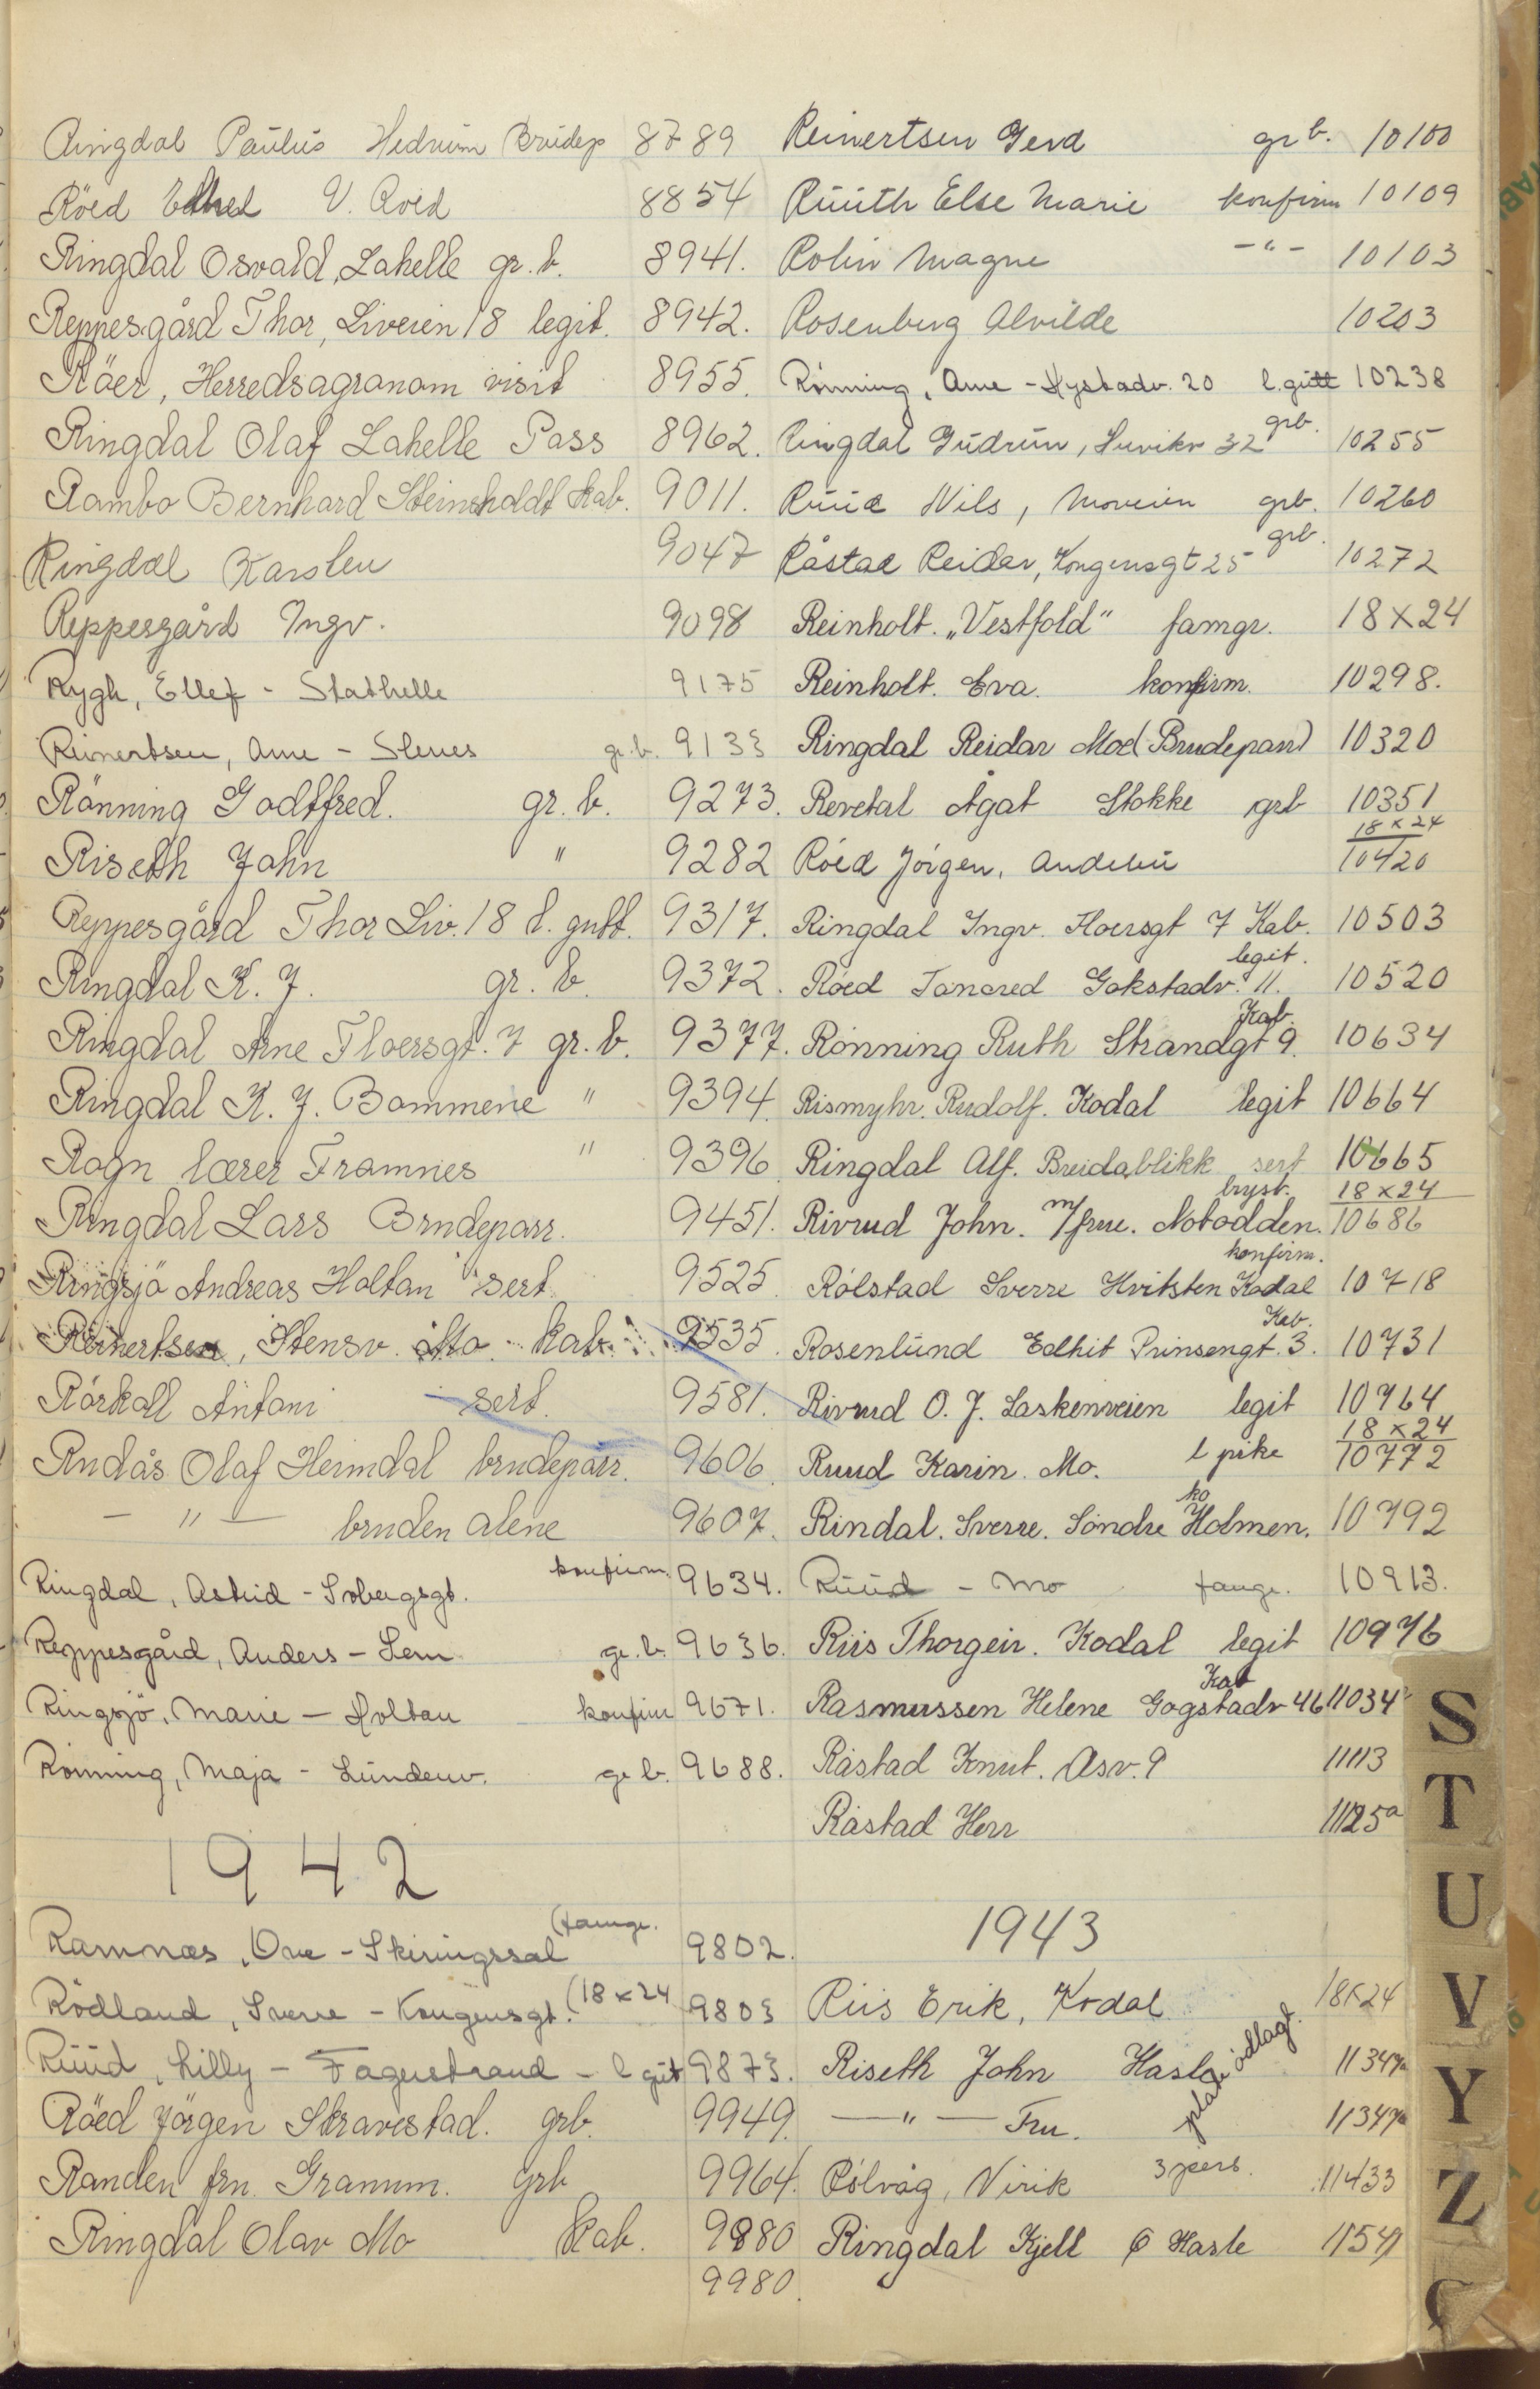 Ringdal Paulus Hedrum Brudep 8789
Röed Edhel V. Roed 8854
Ringdal Osvald, Lahelle gr. b. 8941.
Reppesgård Thor, Liveien 18 legit. 8942.
Röer, Herredsagranom visit 8955.
Ringdal Olaf Lahelle Pass 8962.
Rambo Bernhard Steinsholdt Kab. 9011.
Ringdal Karsten 9047
Reppesgård Ingv. 9098
Rygh, Ellef - Stathelle 9175
Reinertsen, Arne - Stenes gr. b. 9133
Rönning Godtfred. gr. b. 9273.
Riseth John " 9282
Reppesgård Thor Liv. 18 l. gutt. 9317.
Ringdal K. J. gr. b. 9372.
Ringdal Arne Floersgt. 7 gr. b. 9377.
Ringdal K. J. Bommene " 9394.
Rogn lærer Framnes " 9396
Ringdal Lars Brudeparr. 9451.
Ringsjö Andreas Holtan sert. 9525
Reinertsen, Stensv. Mo - Kab. 9535.
Rörkoll Antoni sert. 9581.
Rudås Olaf Heimdal brudeparr. 9606
- " - bruden alene 9607.
Ringdal, Astrid - Sobergsgt. konfirm. 9634.
Reppesgård, Anders - Lem gr. b. 9636.
Ringsjö, Marie - Holtan konfirm 9671.
Rönning, Maja - Lundenv. gr b. 9688.
1942
Ramnæs, Ove - Skiringssal (famgr. 9802.
Rödland, Sverre - Kongensgt. (18 x 24 9803
Ruud, Lilly - Fagerstrand - l gut 9873.
Röed Jörgen Skravestad. grb. 9949.
Randen fru. Granum. grb 9964.
Ringdal Olav Mo Kab. 9980
9980.
Reinertsen Gerd gr b. 10100
Ruuth Else Marie konfirm 10109
Rolin Magne - " - 10103
Rosenberg Alvilde 10203
Rönning, Arne - Nystadv. 20 l. gutt 10238
Ringdal Gudrun, Suvikv 32 grb. 10255
Ruud Nils, Moveien grb. 10260
Råstad Reidar, Kongensgt 25 grb. 10272
Reinholt. "Vestfold" famgr. 18 x 24
Reinholt. Eva. konfirm. 10298.
Ringdal Reidar Mo (Brudepar) 10320
Revetal Ågat Stokke grb 10351
18 x 24
Röed Jörgen, Andebu 10420
Ringdal Ingv. Floersgt 7 Kab. 10503
Röed Tancred Gokstadv. 11. legit. 10520
Rönning Ruth Strandgt 9. Kab. 10634
Rismyhr. Rudolf. Kodal legit 10664
Ringdal Alf. Breidablikk sert 10665
bryst. 18 x 24
Rivrud John. m/frue. Notodden. 10686
konfirm.
Rölstad Sverre Hvitsten Kodal 10718
Kab.
Rosenlund Edhit Prinsengt. 3. 10731
Rivrud O. J. Laskenveien legit 10764
18 x 24
Ruud Karin. Mo. l pike 10772
ko
Rindal. Sverre. Söndre Holmen. 10792
Ruud - Mo famgr. 10913.
Riis Thorgeir. Kodal legit 10976
Kab
Rasmussen Helene Gogstadv 46 11034
Råstad Knut. Åsv. 9 11113
Råstad Herr 11125a
1943
Riis Erik, Kodal 18x24
Riseth John Hasle plate ödlagt. 11347a
- " - Fru. 11347a
Rölvåg, Virik 3 pers. 11433
Ringdal Kjell Ø Hasle 11541
S
T
U
V
Y
Z